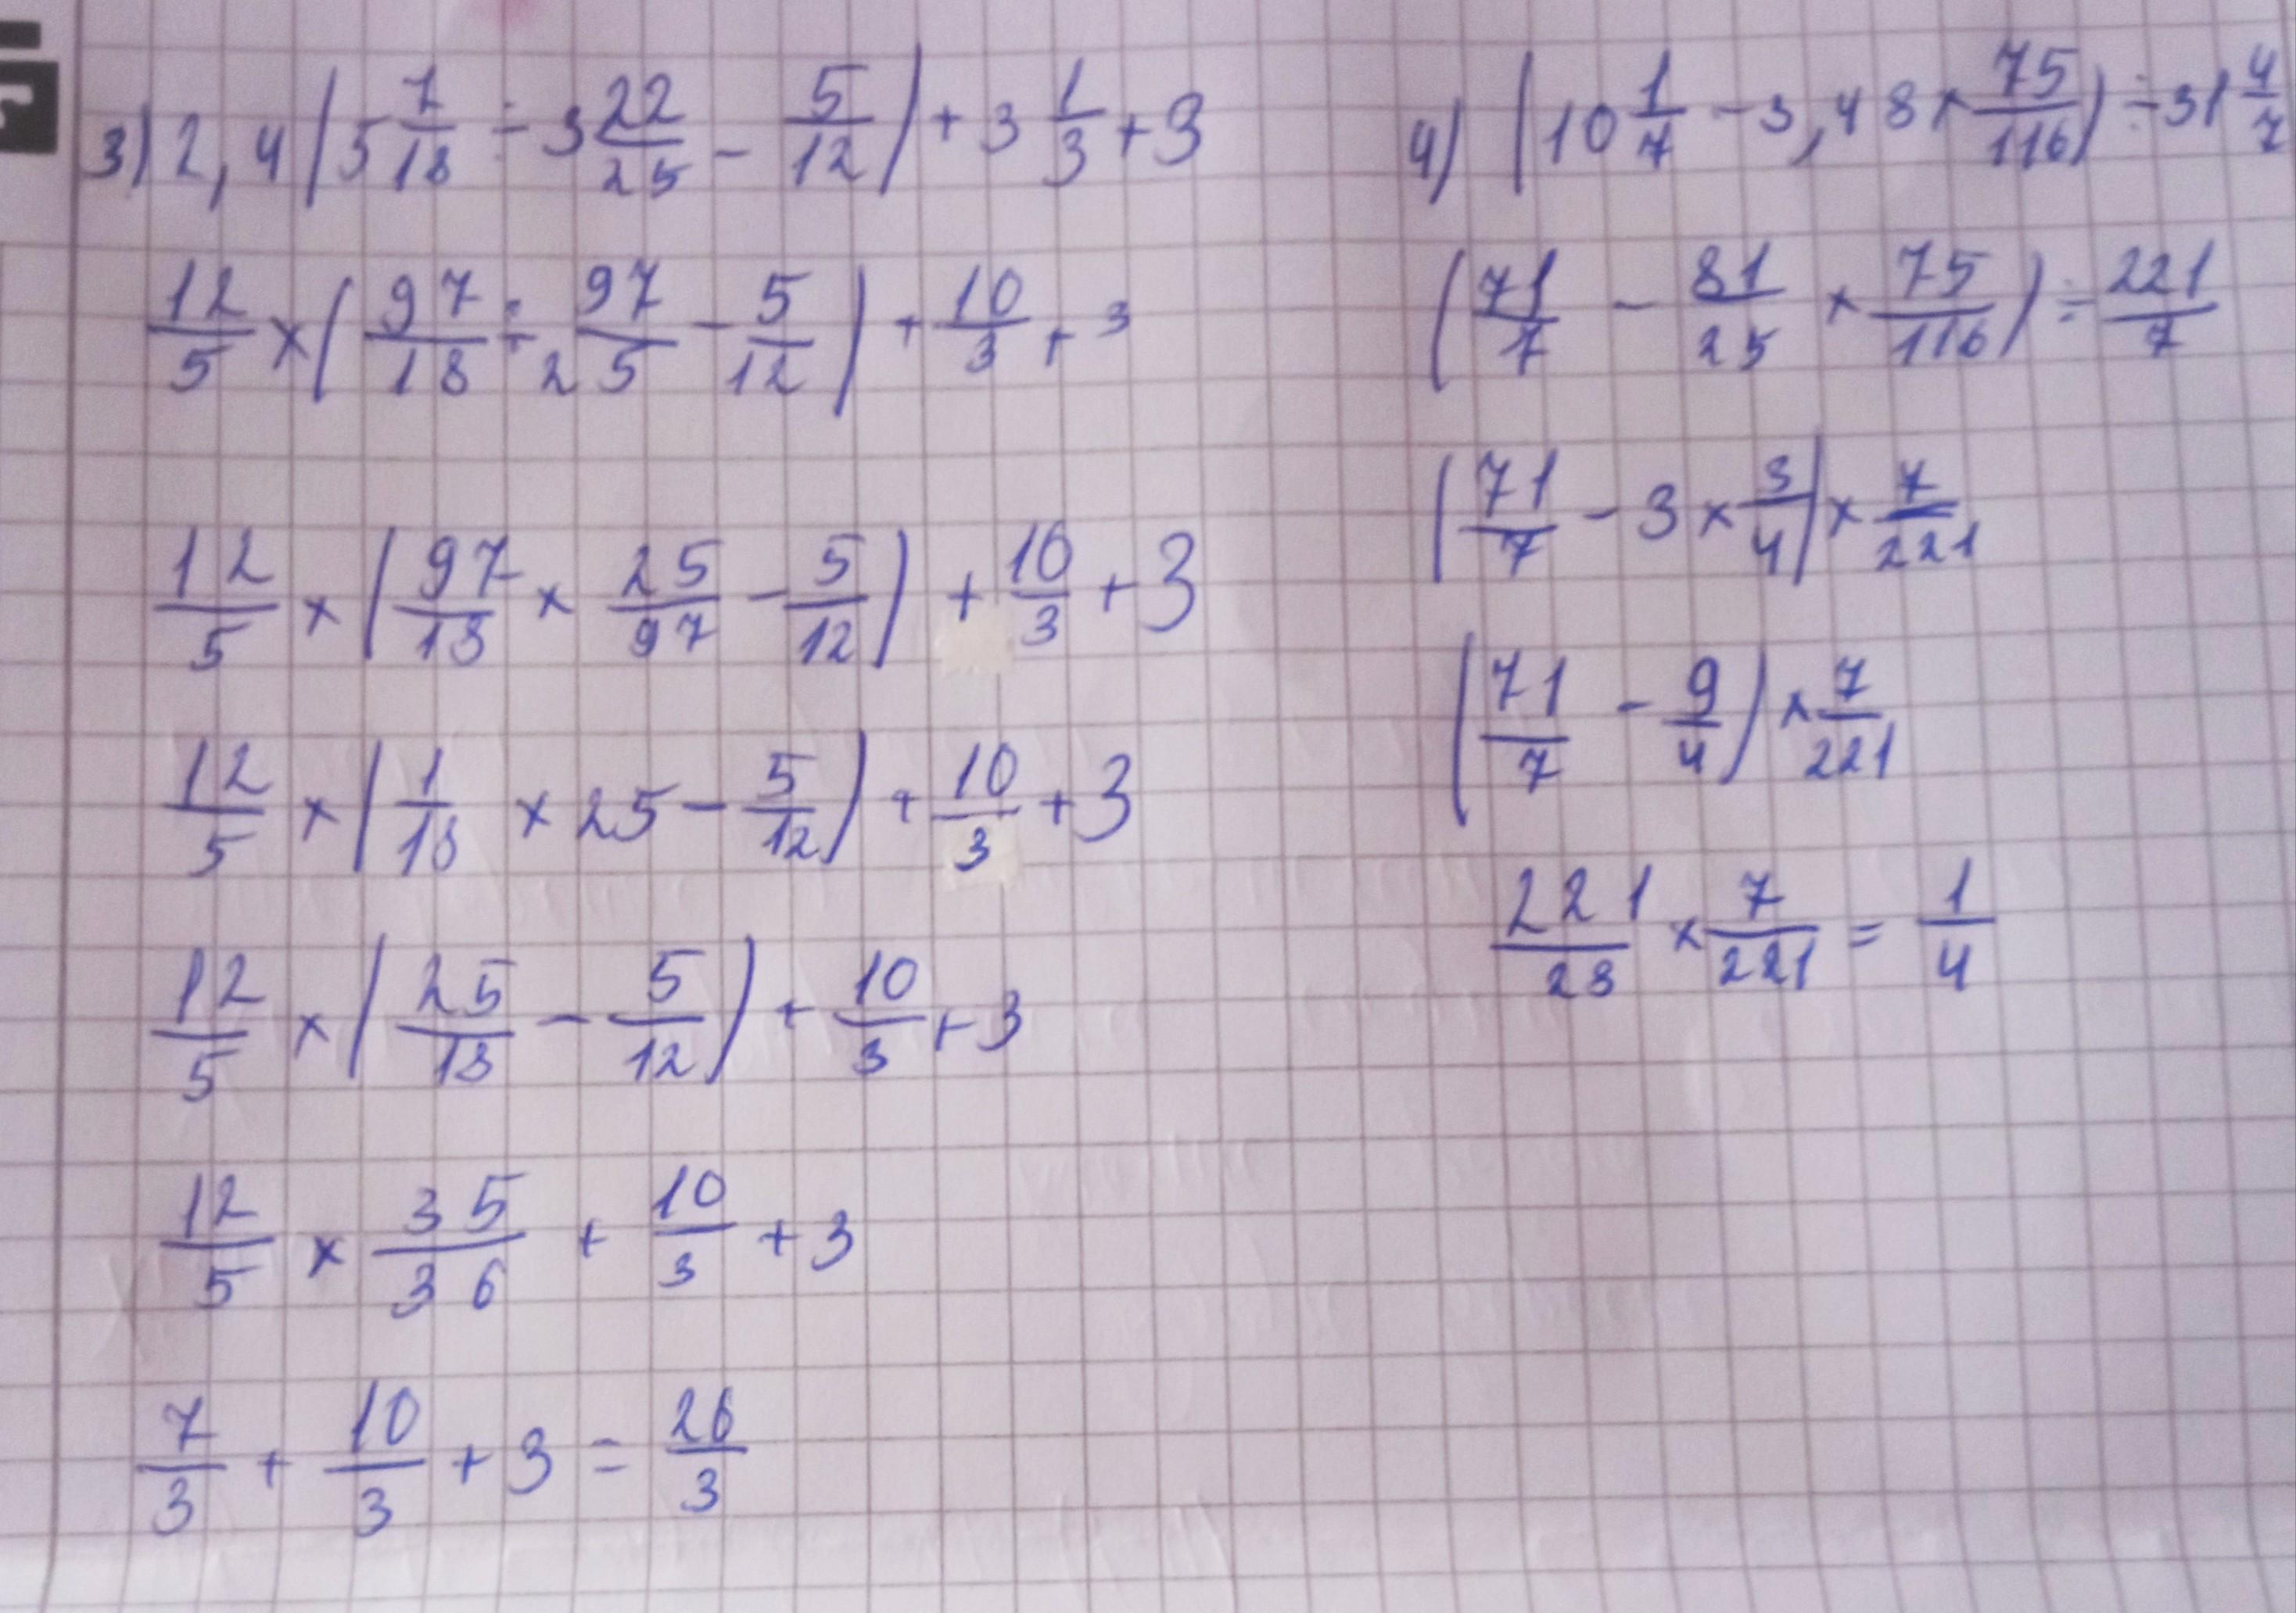 3) 2,4 (5 7/18 ÷ 3 22/25 - 5/12) + 3 1/3 + 3
12/5 × (97/18 ÷ 97/25 - 5/12) + 10/3 + 3
12/5 × (97/18 × 25/97 - 5/12) + 10/3 + 3
12/5 × (1/18 × 25 - 5/12) + 10/3 + 3
12/5 × (25/18 - 5/12) + 10/3 + 3
12/5 × 35/36 + 10/3 + 3
7/3 + 10/3 + 3 = 26/3
4) (10 1/7 - 3,48 × 75/116) ÷ 31 4/7
(71/7 - 81/25 × 75/116) ÷ 221/7
(71/7 - 3 × 3/4) × 7/221
(71/7 - 9/4) × 7/221
221/28 × 7/221 = 1/4